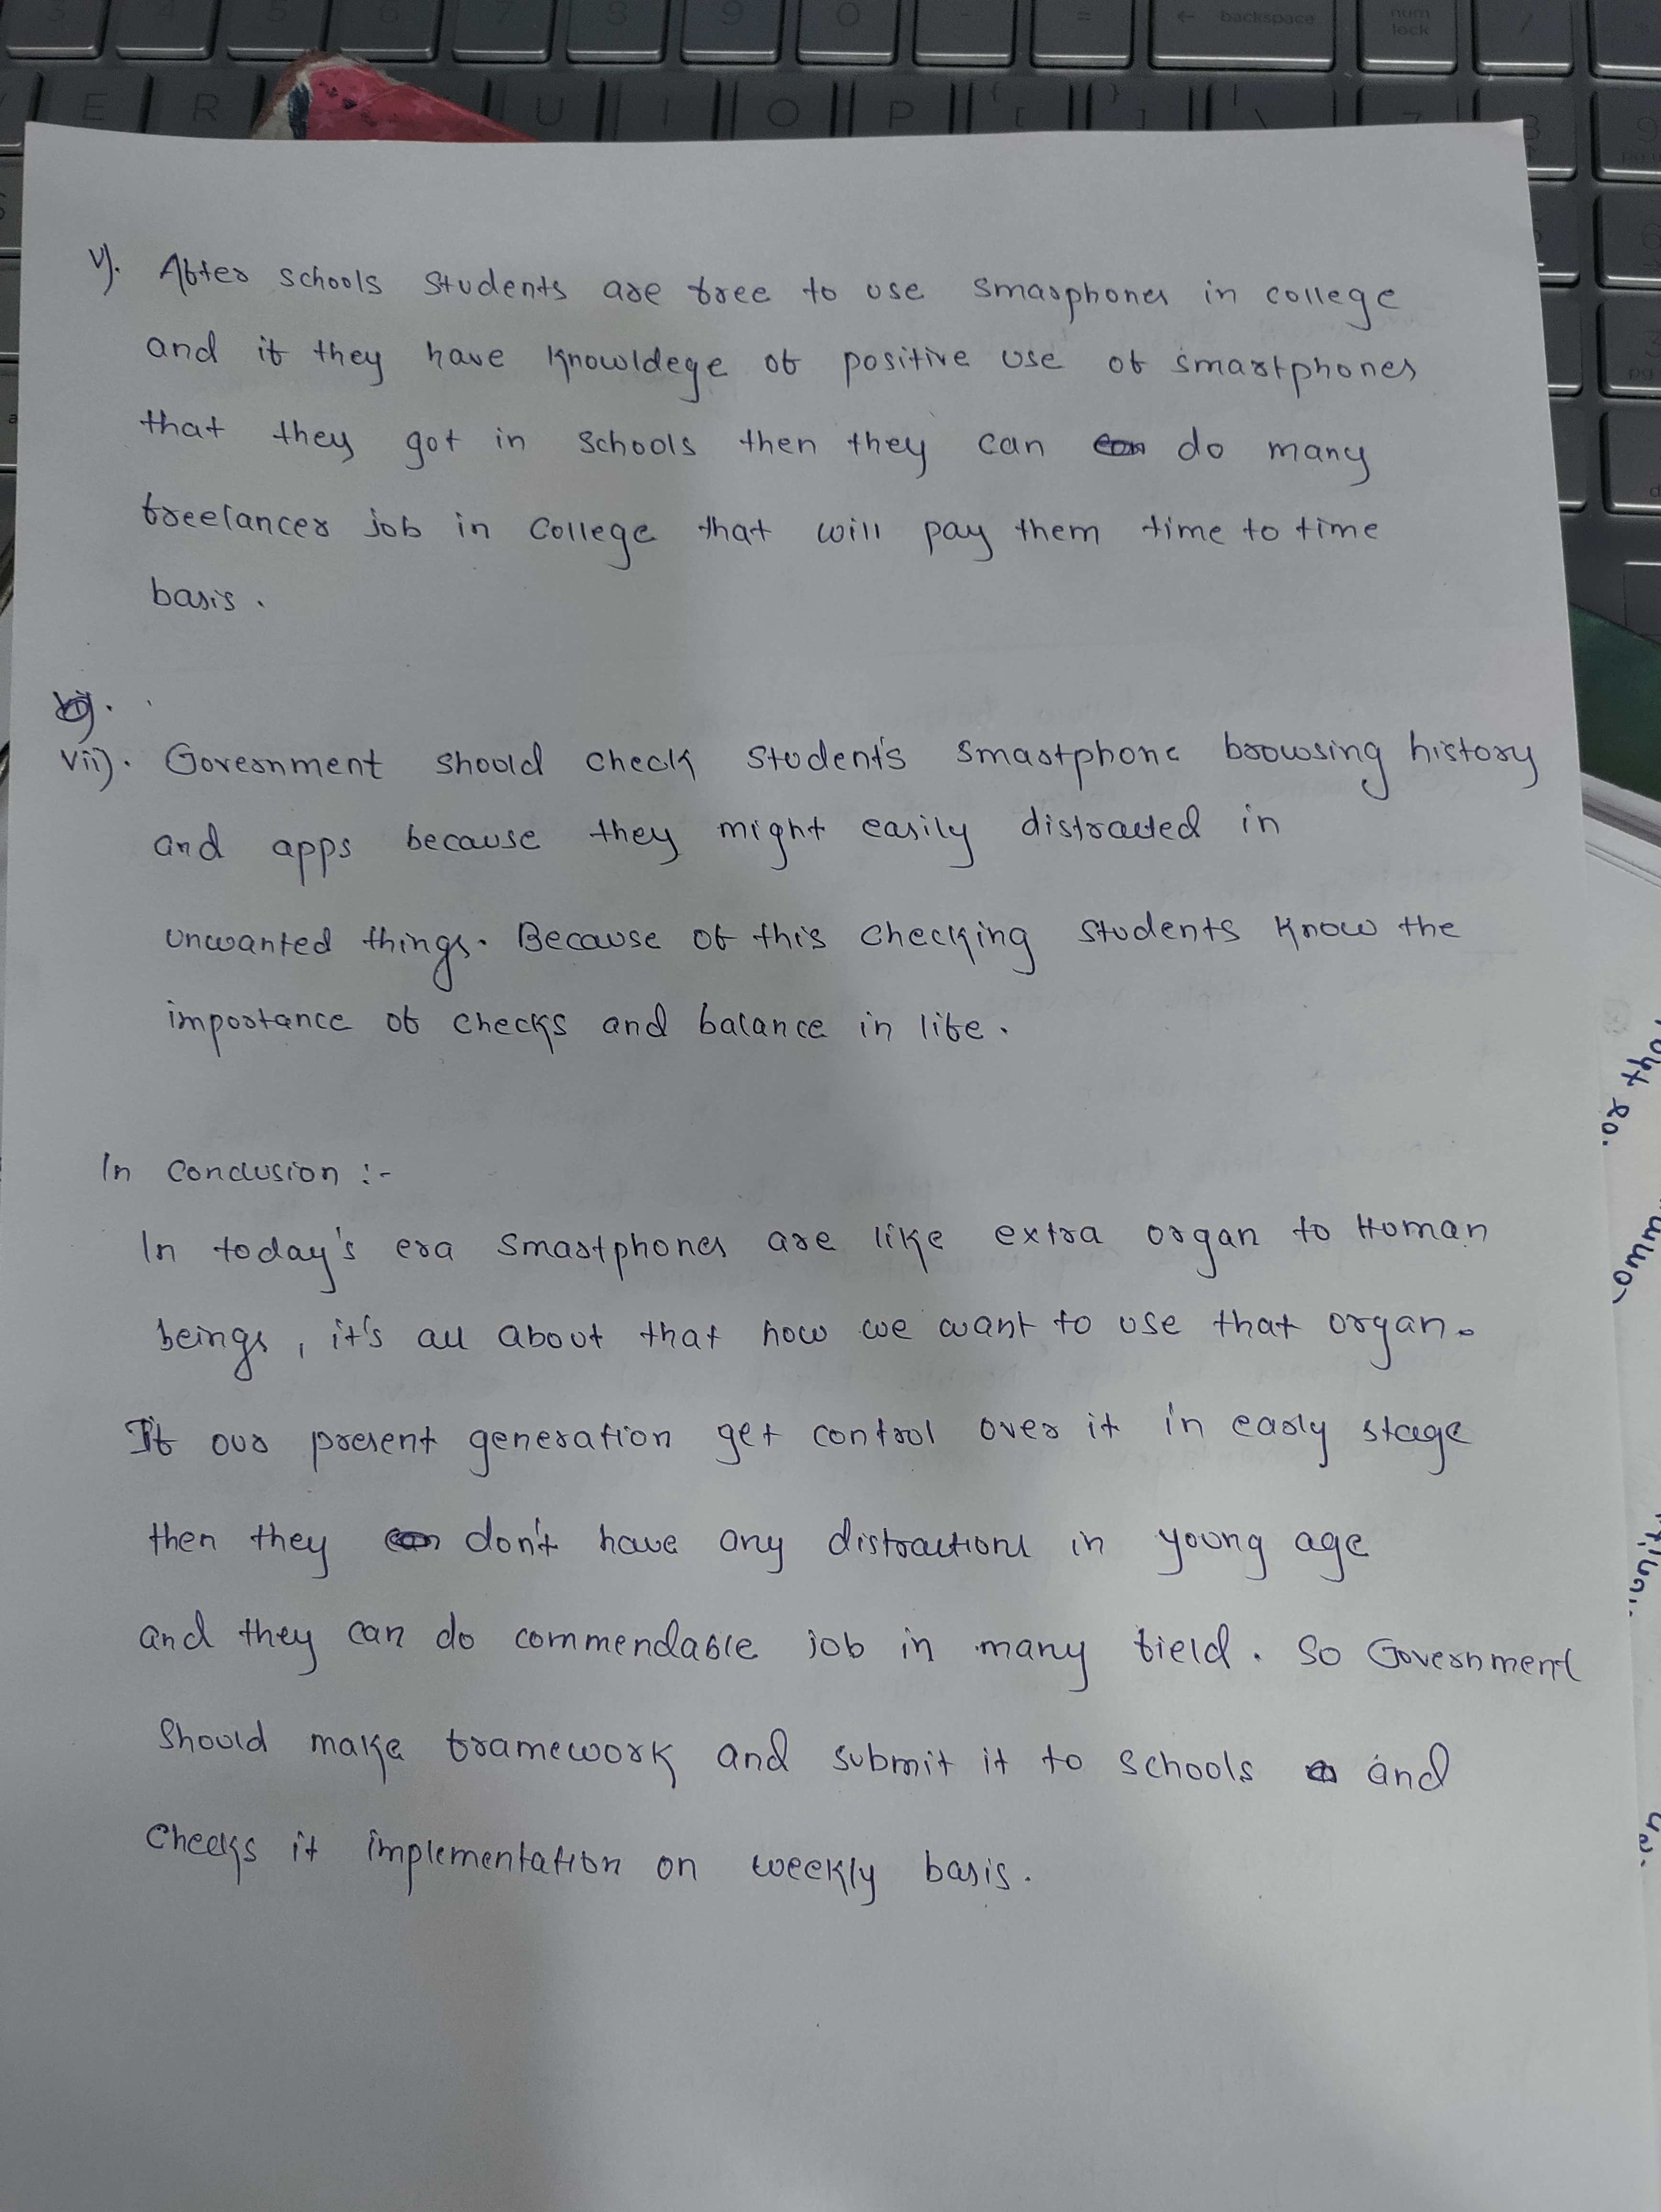 3 4 5 6 7 8 9 0 - = ← backspace num lock /
E R U I O P { [ } ] | \ 7 8 9
v). After schools students are free to use smarphones in college
and if they have knowldege of positive use of smartphones
that they got in schools then they can do many
freelancer job in college that will pay them time to time
basis.
vii). Government should check student's smartphone browsing history
and apps because they might easily distracted in
unwanted things. Because of this checking students know the
importance of checks and balance in life.
In conclusion :-
In today's era smartphones are like extra organ to Human
beings, it's all about that how we want to use that organ.
If our present generation get control over it in early stage
then they don't have any distractions in young age
and they can do commendable job in many field. So Government
should make framework and submit it to schools and
checks it implementation on weekly basis.